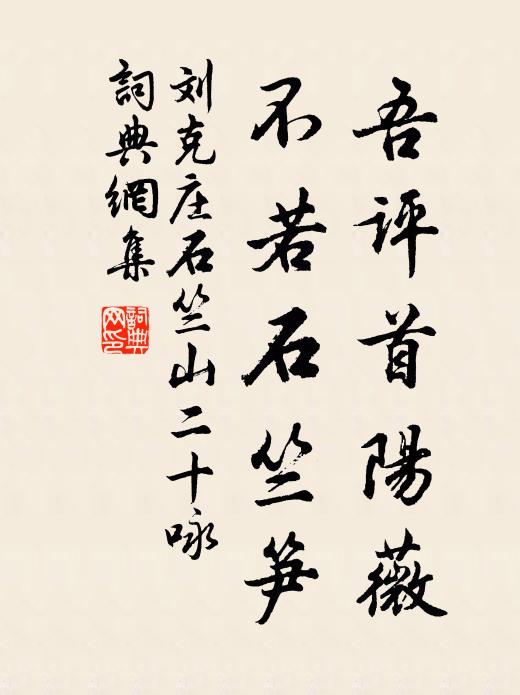 吾评首陽薇
不若石竺笋
刘克庄石竺山二十咏
詞典網集
詞典网印